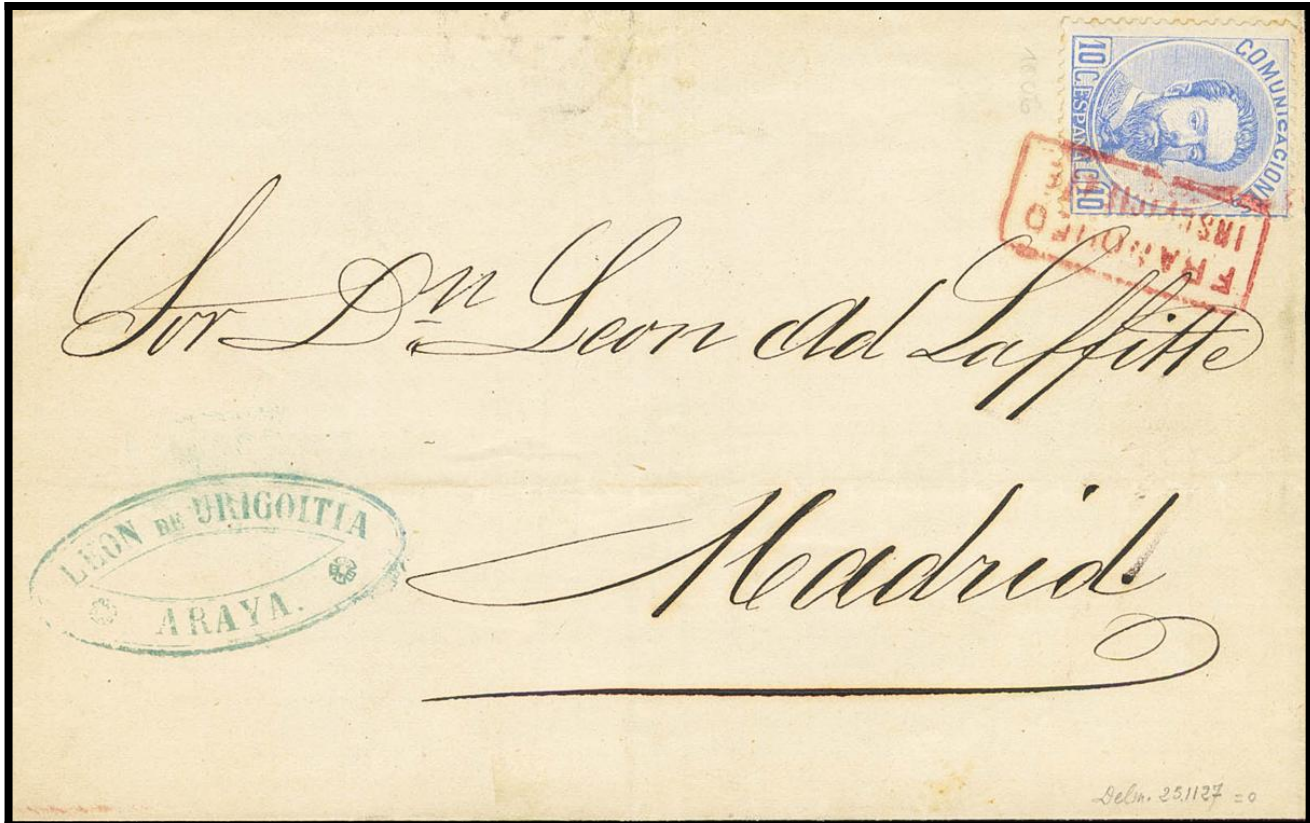 COMUNICACIONES
10 C. ESPAÑA C. 10
FRANQUEO
INSUFICIENTE
Sor Dn Leon Ad Laffitte
Madrid
LEON DE URIGOITIA
ARAYA.
Delm. 25.1127 = 0